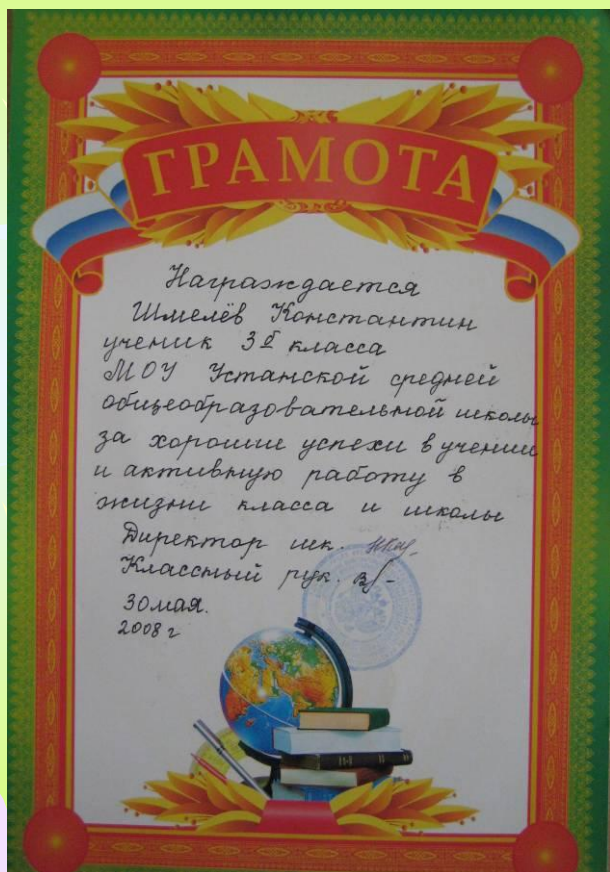 ГРАМОТА
Награждается
Шмелёв Константин
ученик 3 б класса
МОУ Устанской средней
общеобразовательной школы
за хорошие успехи в учении
и активную работу в
жизни класса и школы
Директор шк.
Классный рук.
30 мая.
2008 г